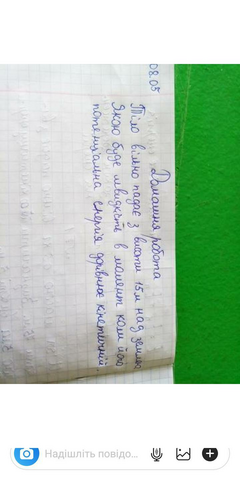 08.05
Домашня робота
Тіло вільно падає з висоти 15м над землею
Якою буде швидкість в момент коли його
потенціальна енергія дорівнює кінетичній.
Надішліть повідо...